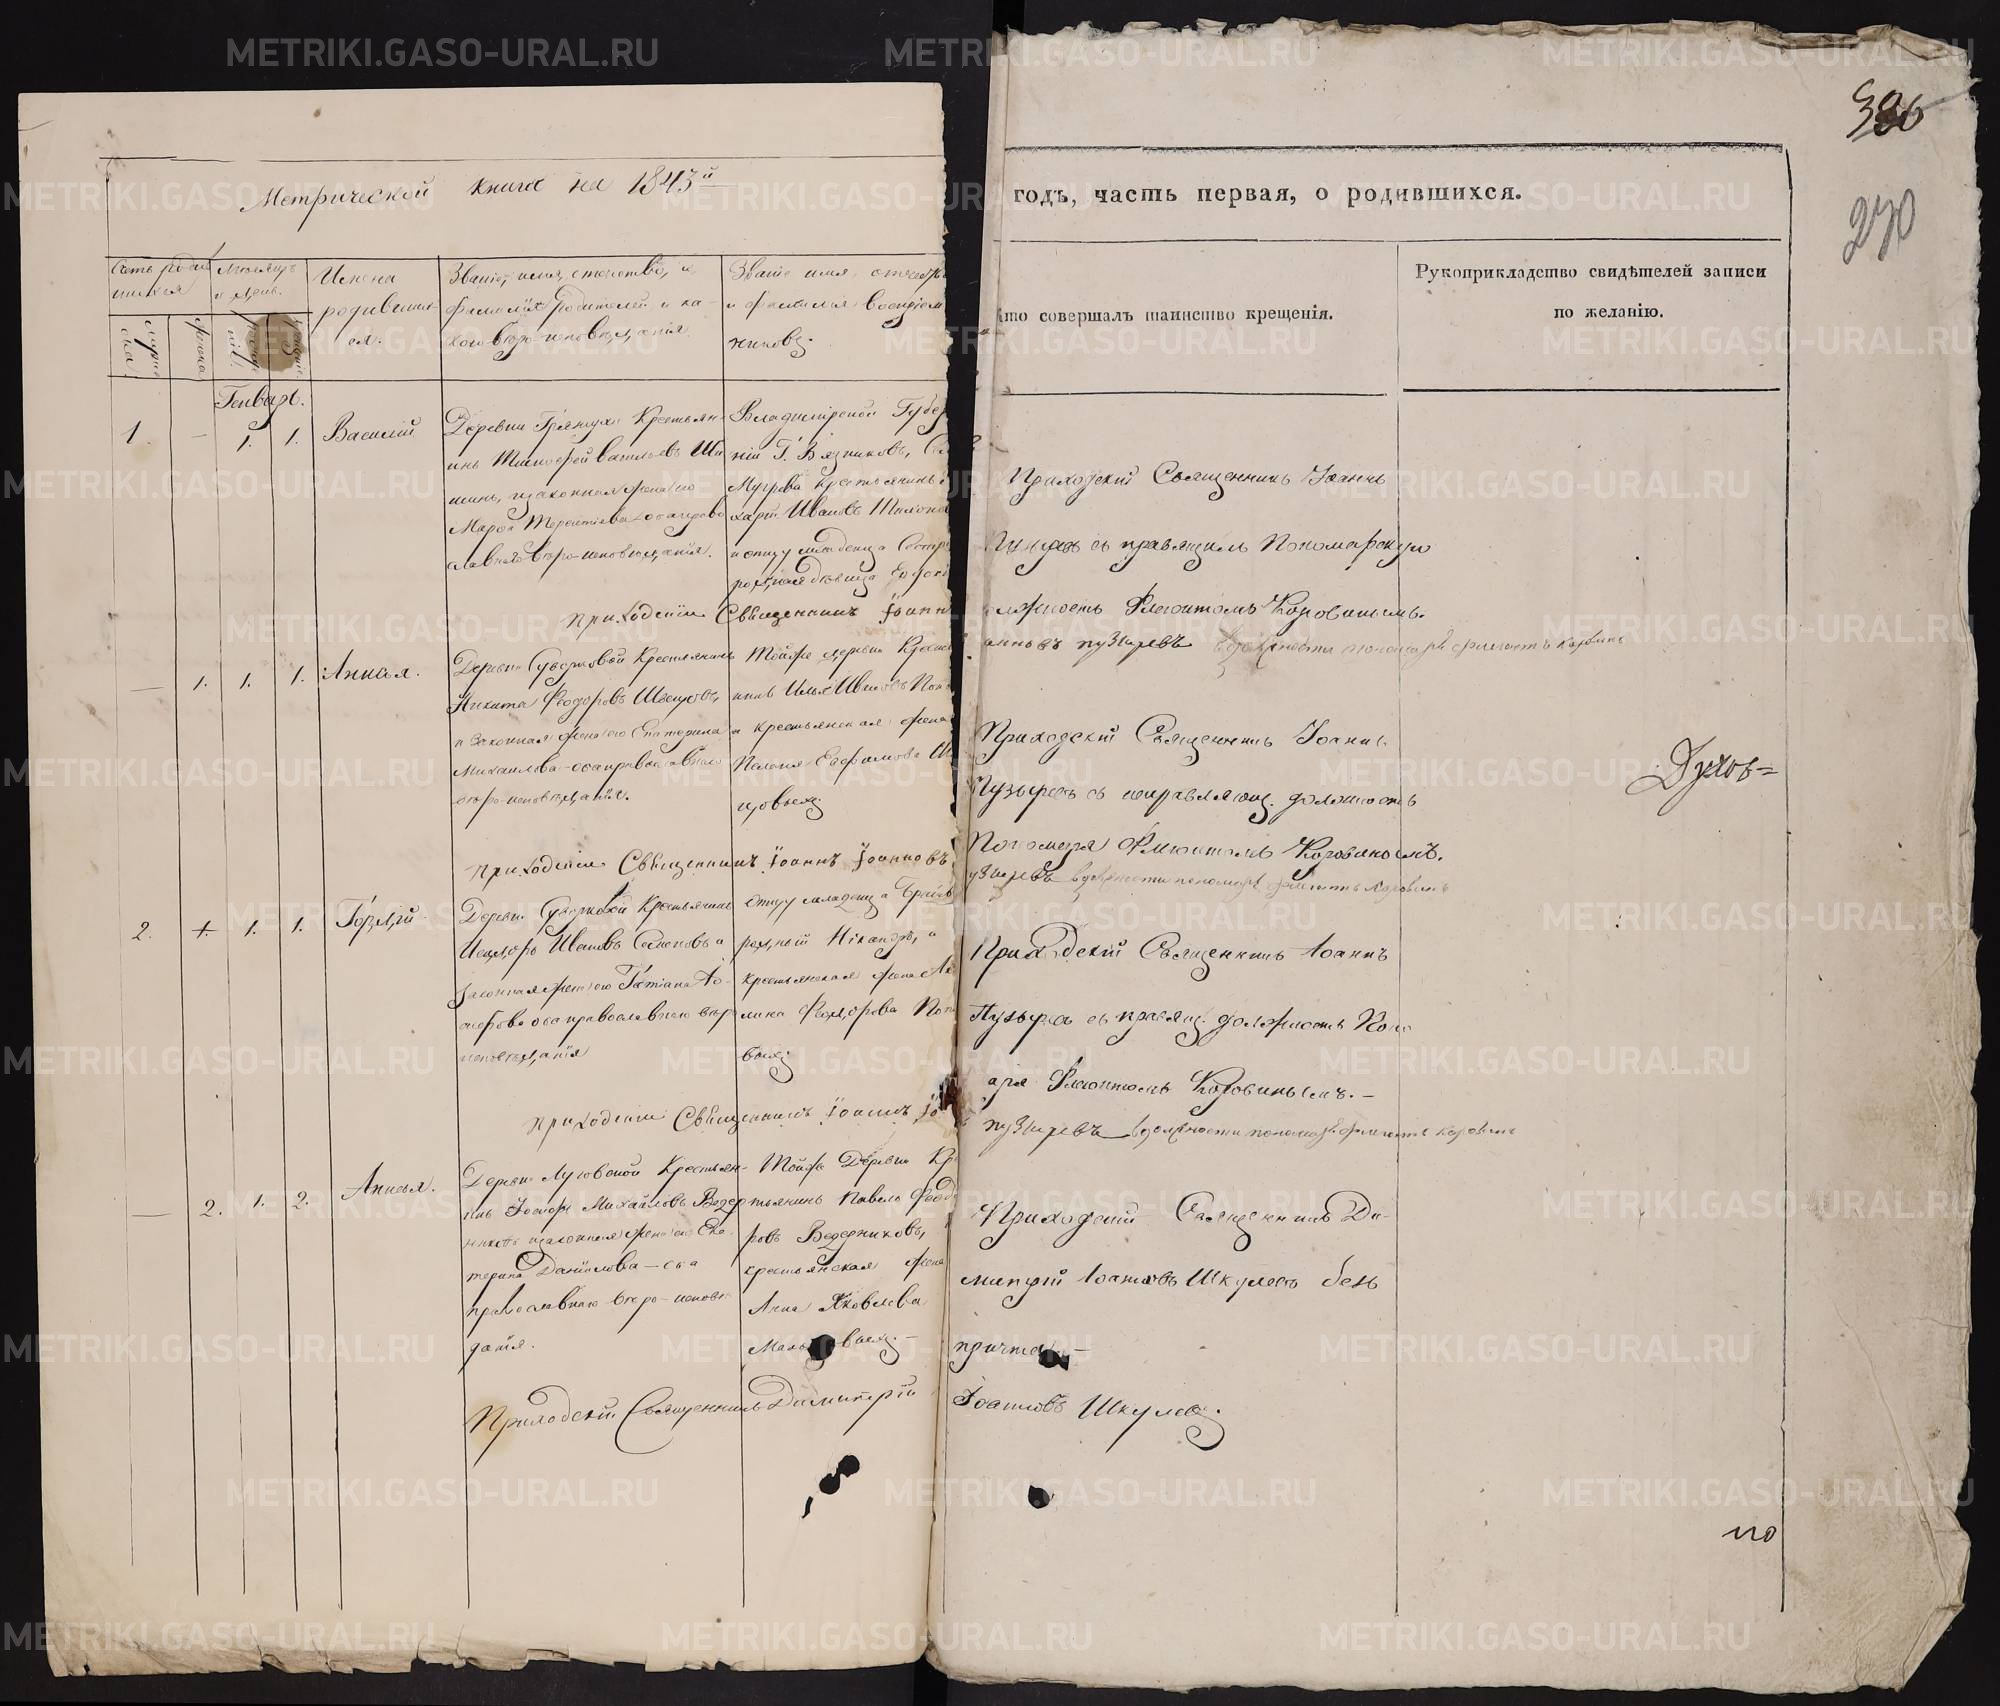 METRIKI.GASO-URAL.RU
380
270
Метрической книга на 1843й
годъ, часть первая, о родившихся.
Счетъ родившихся
Мѣсяцъ и день.
Имена родившихся.
Званіе, имя, отчество, и
фамилія родителей и ка-
кого вѣро-исповѣданія
Званіе имя отчество
и фамилія воспріем
никовъ.
кто совершалъ таинство крещенія.
Рукоприкладство свидѣтелей записи
по желанію.
Генварь.
1 — 1. 1. Василій
Деревни Грязнухи Крестьян-
инъ Тимофей Васильевъ Ши
шинъ, и законная жена его
Марфа Терентіева оба право
славнаго вѣро-исповѣданія.
Владимірской Губер
ніи Г. Вязниковъ,
Крестьянинъ
Ивановъ Тихоно
и отцу младенца Сестра
родная дѣвица
Приходскій Священникъ Іоаннъ
Пузыревъ съ правящимъ Пономарскую
должность Флегонтомъ Коровинымъ.
приходскій Священникъ Іоаннъ
Іоанновъ пузыревъ в должности пономаря флегонтъ коровинъ
— 1. 1. 1. Анисья.
Деревни Суворковой Крестьянинъ
Никита Феодоровъ Швецовъ,
и законная жена его Екатерина
Михаилова оба православнаго
вѣро-исповѣданія.
Тойже деревни Крестья
нинъ Илья Ивановъ Поп
и крестьянская жена
Пелагія Евфимова
цовыхъ
Приходскій Священникъ Іоаннъ
Пузыревъ съ исправляющ. должность
Пономаря Флегонтомъ Коровинымъ.
приходскій Священникъ Іоаннъ Іоанновъ
пузыревъ в должности пономаря флегонтъ коровинъ
Духов=
2. 1. 1. 1. Гордѣй
Деревни Суворковой Крестьянинъ
Исидоръ Ивановъ Семеновъ и
законная жена его Татіана
оба православнаго вѣро
исповѣданія
отцу младенца братъ
родный Никандръ, и
крестьянская жена
Феодорова Поп
выхъ
Приходскій Священникъ Іоаннъ
Пузыревъ съ правящ. должность Поно
аря Флегонтомъ Коровинымъ. —
приходскій Священникъ Іоаннъ
пузыревъ в должности пономаря флегонтъ коровинъ
— 2. 1. 2. Анисья.
Деревни Луговской Крестьян-
инъ Іосифъ Михайловъ Ведер
никовъ и законная жена его Ека
терина Даніилова — оба
православнаго вѣро-исповѣ
данія.
Тойже Деревни Кре
стьянинъ Павелъ Феодо
ровъ Ведерниковъ,
крестьянская жена
Анна Яковлева
выхъ. —
Приходскій Священникъ Ди-
митрій Іоанновъ Шкулевъ безъ
причта. —
Приходскій Священникъ Димитрій Іоанновъ Шкулевъ.
по